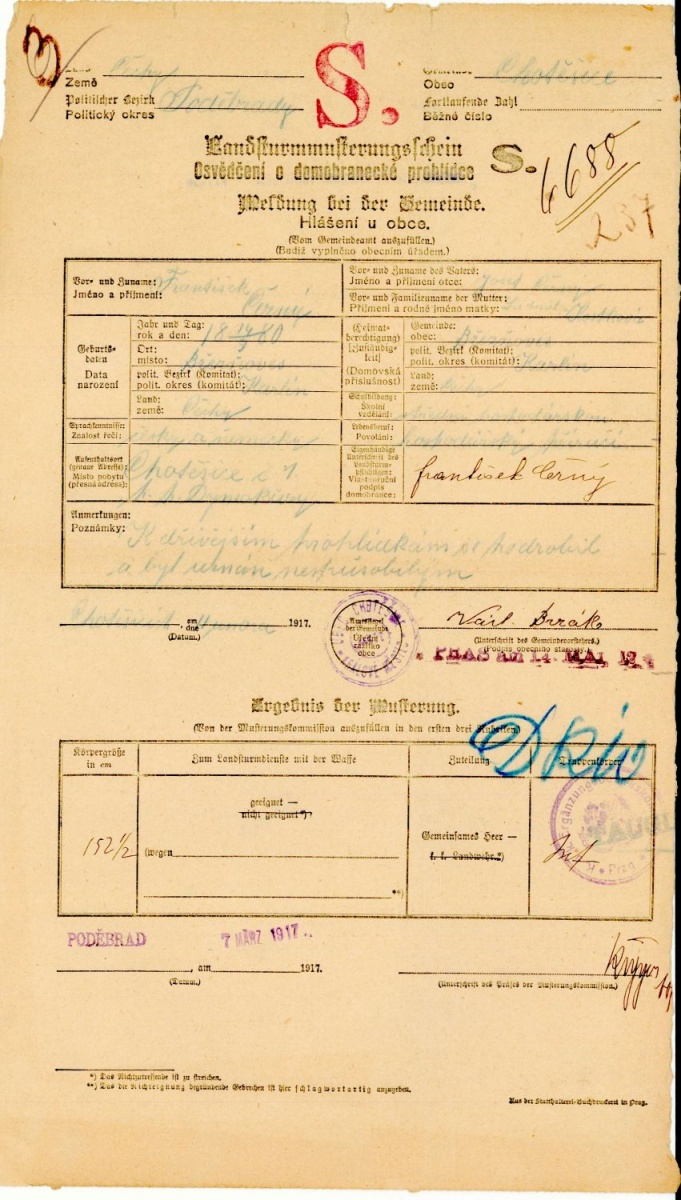 Země Čechy
Gemeinde Chotěšice
Obec
Politischer Bezirk Poděbrady
Politický okres
Fortlaufende Zahl
Běžné číslo
S.
Landsturmmusterungsschein S.
Osvědčení o domobranecké prohlídce
6688
257
Meldung bei der Gemeinde.
Hlášení u obce.
(Vom Gemeindeamt auszufüllen.)
(Budiž vyplněno obecním úřadem.)
Vor- und Zuname: František
Jméno a příjmení: Černý
Vor- und Zuname des Vaters: Josef
Jméno a příjmení otce:
Vor- und Familienname der Mutter:
Příjmení a rodné jméno matky:
Geburts-
daten
Data
narození
Jahr und Tag:
rok a den: 18 80
Ort:
místo:
polit. Bezirk (Komitat):
polit. okres (komitát): Karlín
Land:
země: Čechy
(Heimat-
berechtigung)
[Zuständig-
keit]
(Domovská
příslušnost)
Gemeinde:
obec:
polit. Bezirk (Komitat):
polit. okres (komitát): Karlín
Land:
země: Čechy
Schulbildung:
Školní
vzdělání:
Sprachkenntnisse:
Znalost řečí: česky a německy
Lebensberuf:
Povolání: hospodářský
Aufenthaltsort
(genaue Adresse):
Místo pobytu
(přesná adresa): Chotěšice č 1
Eigenhändige
Unterschrift des
Landsturm-
pflichtigen:
Vlastnoruční
podpis
domobrance: František Černý
Anmerkungen:
Poznámky: K dřívějším prohlídkám se podrobil
a byl uznán nezpůsobilým
am
dne 1917.
(Datum.)
Amtssiegel
der Gemeinde
Úřední
razítko
obce
(Unterschrift des Gemeindevorstehers.)
(Podpis obecního starosty.)
PRAG AM 14. MAI. 19
Ergebnis der Musterung.
(Von der Musterungskommission auszufüllen in den ersten drei Einheiten)
Körpergröße
in cm
Zum Landsturmdienste mit der Waffe
Zuteilung
Truppenkörper
152 1/2
geeignet —
nicht geeignet*)
(wegen
**)
Gemeinsames Heer —
k. k. Landwehr.*)
Inf
PODĚBRAD 7 MÄRZ 1917
, am 1917.
(Datum.)
(Unterschrift des Präses der Musterungskommission.)
*) Das Nichtzutreffende ist zu streichen.
**) Das der Nichteignung begründende Gebrechen ist hier schlagwortartig anzugeben.
Aus der Statthalterei-Buchdruckerei in Prag.